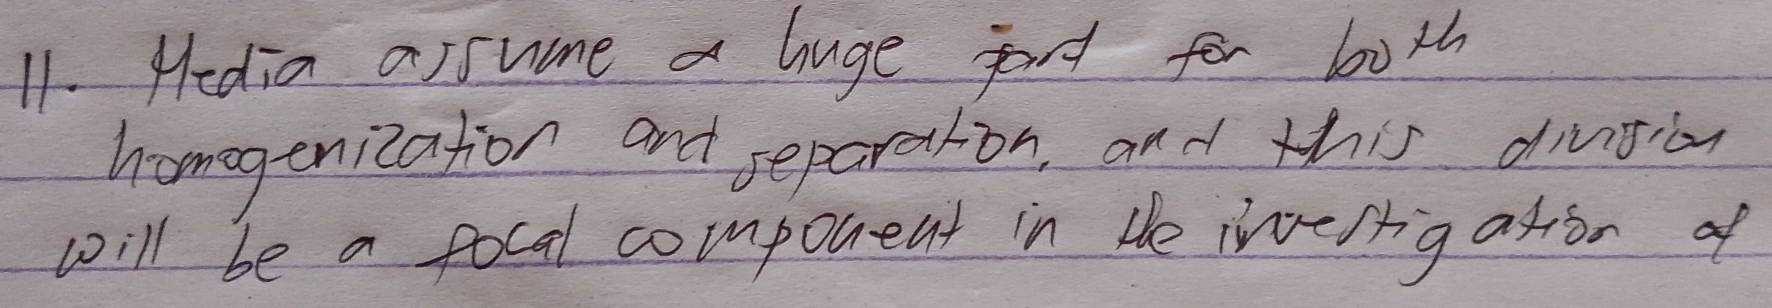 11. Media assume a huge part for both
homogenization and separation, and this division
will be a focal component in the investigation of